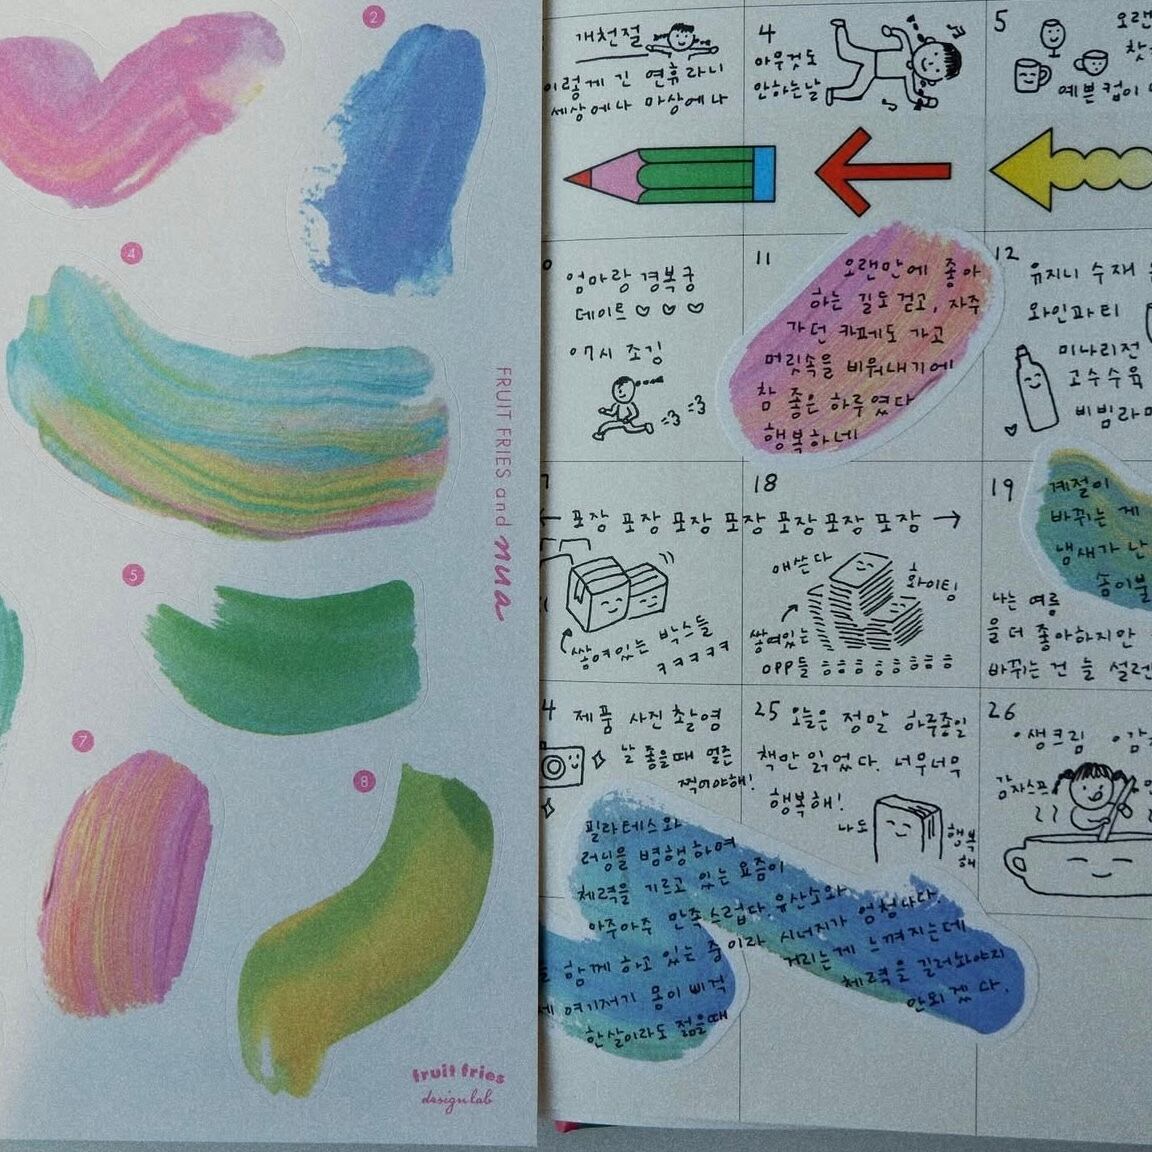 2
4
5
7
8
FRUIT FRIES and nua
fruit fries
design lab
개천절
이렇게 긴 연휴라니
세상에나 마상에나
4
아무것도
안하는날
5
오랜
찻
예쁜 컵이
엄마랑 경복궁
데이트♡♡♡
07시 조깅
11
오랜만에 좋아
하는 길도 걷고, 자주
가던 카페도 가고
머릿속을 비워내기에
참 좋은 하루였다
행복하네
12
유지니 수재
와인파티
미나리전
고수수육
비빔라면
7
← 포장 포장 포장 포장 포장 포장 포장 →
쌓여있는 박스들
ㅋㅋㅋㅋㅋ
18
애쓴다
화이팅
쌓여있는
OPP들 ㅎㅎㅎㅎㅎㅎㅎㅎ
19
계절이
바뀌는 게
냄새가 난
송이불
나는 여름
을 더 좋아하지만
바뀌는 건 늘 설레
4 제품 사진 촬영
날 좋을때 얼른
찍어야해!
25 오늘은 정말 하루종일
책만 읽었다. 너무너무
행복해!
나도
행복
해
26
생크림
감자스프
필라테스와
러닝을 병행하여
체력을 기르고 있는 요즘이
아주아주 만족스럽다 유산소와
함께 하고 있는 중이라 시너지가 엄청나다.
여기저기 몸이 삐걱
거리는게 느껴지는데
한살이라도 젊을때
체력을 길러놔야지
안되겠다.